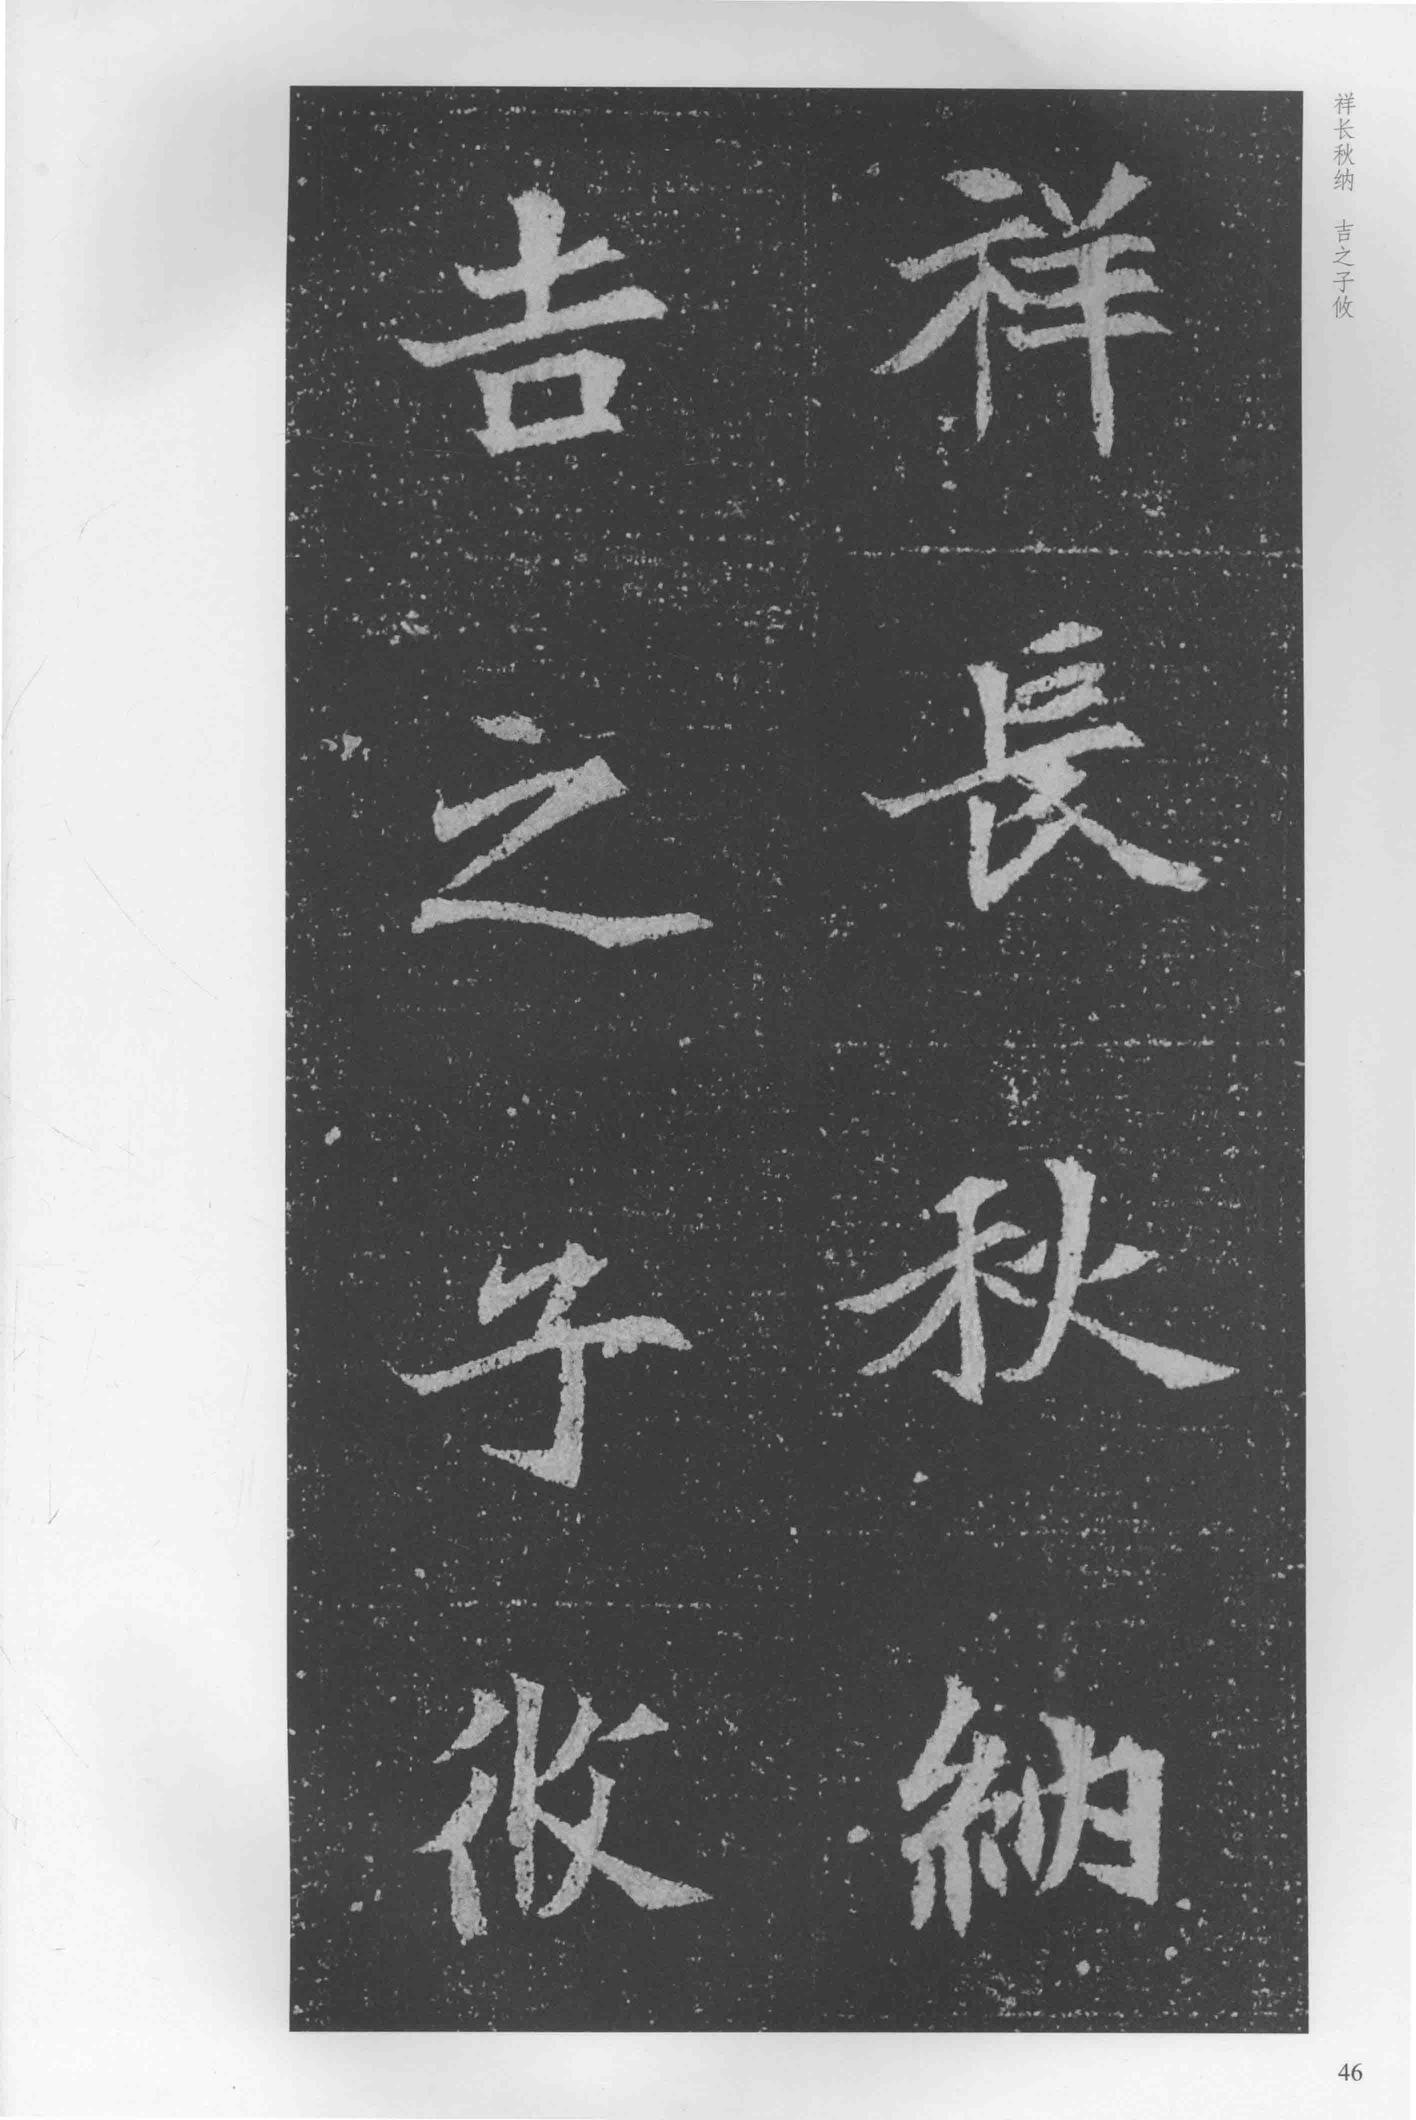 祥長秋納
吉之子攸
祥长秋纳 吉之子攸
46